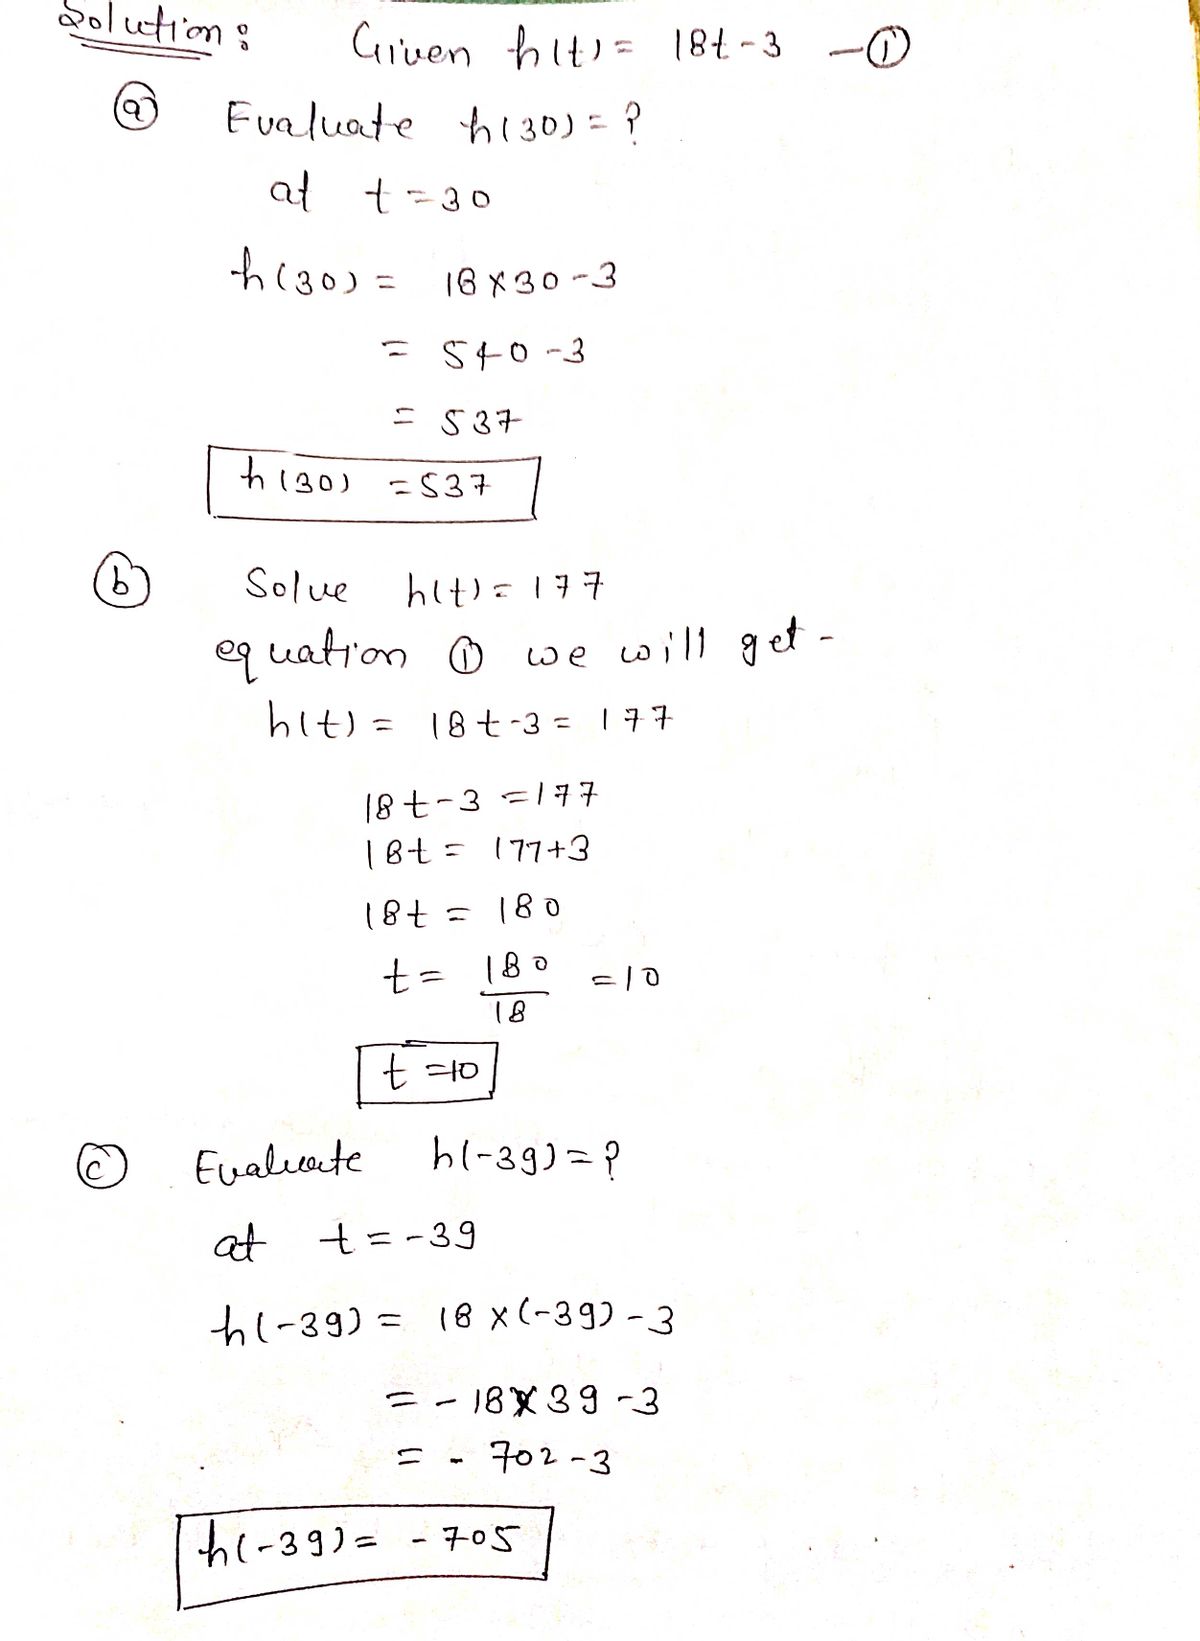 Solution: Given h(t) = 18t - 3 - ①
ⓐ Evaluate h(30) = ?
at t = 30
h(30) = 18 × 30 - 3
= 540 - 3
= 537
h(30) = 537
ⓑ Solve h(t) = 177
equation ① we will get -
h(t) = 18t - 3 = 177
18t - 3 = 177
18t = 177 + 3
18t = 180
t = 180/18 = 10
t = 10
ⓒ Evaluate h(-39) = ?
at t = -39
h(-39) = 18 × (-39) - 3
= - 18 × 39 - 3
= - 702 - 3
h(-39) = - 705